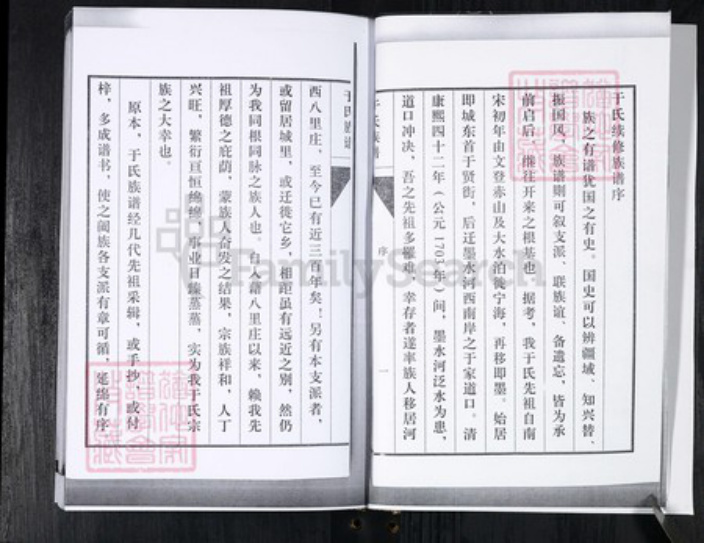 于氏续修族谱序
族之有谱犹国之有史。国史可以辨疆域、知兴替、
振国风，族谱则可叙支派、联族谊、备遗忘，皆为承
前启后，继往开来之根基也。据考，我于氏先祖自南
宋初年由文登赤山及大水泊徙宁海，再移即墨。始居
即城东首于贤街，后迁墨水河西南岸之于家道口。清
康熙四十二年（公元1703年）间，墨水河泛水为患，
道口冲决，吾之先祖多罹难，幸存者遂率族人移居河
于氏族谱
序
一
于氏族谱
西八里庄，至今已有近三百年矣！另有本支派者，
或留居城里，或迁徙它乡，相距虽有远近之别，然仍
为我同根同脉之族人也。自入籍八里庄以来，赖我先
祖厚德之庇荫，蒙族人奋发之结果，宗族祥和，人丁
兴旺，繁衍亘恒绵绵，事业日臻蒸蒸，实为我于氏宗
族之大幸也。
原本，于氏族谱经几代先祖采辑，或手抄，或付
梓，多成谱书，使之阖族各支派有章可循，延绵有序
FamilySearch